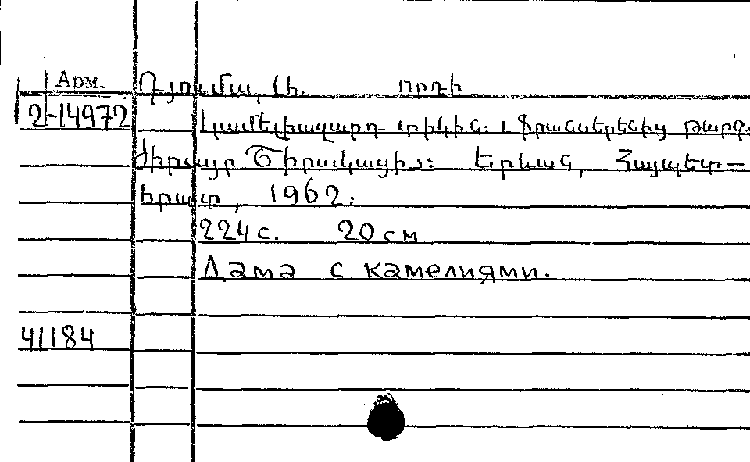 Арм.
2-14972
Դյումա, Ա. որդի
Կամելիազարդ տիկին: Ֆրանսերենից թարգ.
Ժիրայր Երևան, Հայպետ-
հրատ, 1962.
224 с. 20 см
Дама с камелиями.
41184